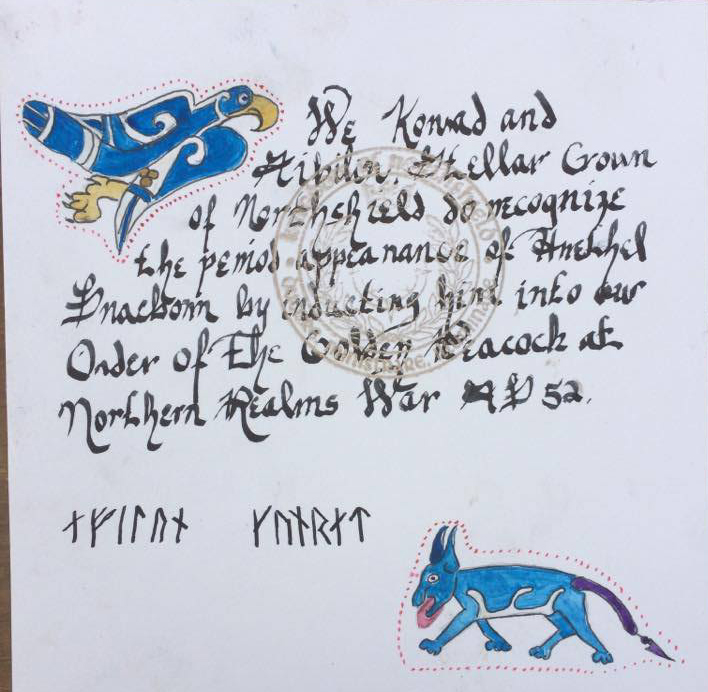 We Konrad and
Aibilin, Stellar Crown
of Northshield do recognize
the period appearance of
by inducting him into our
Order of the Golden Peacock at
Northern Realms War AS 52.
ᛆᚠᛁᛚᚢᚾ ᚴᚢᚾᚱᛆᛏ